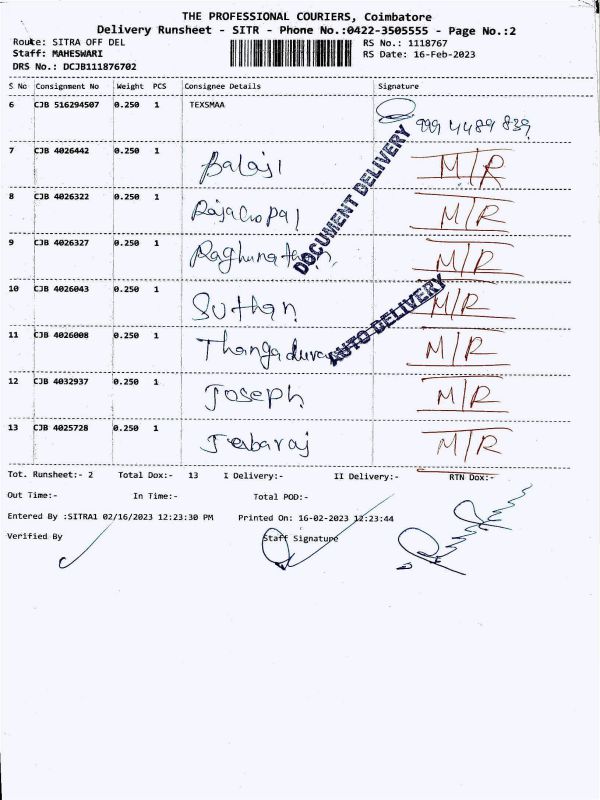 THE PROFESSIONAL COURIERS, Coimbatore
Delivery Runsheet - SITR - Phone No.:0422-3505555 - Page No.:2
Route: SITRA OFF DEL
RS No.: 1118767
Staff: MAHESWARI
RS Date: 16-Feb-2023
DRS No.: DCJB111876702
S No Consignment No Weight PCS Consignee Details Signature
6 CJB 516294507 0.250 1 TEXSMAA
999 4489 839
7 CJB 4026442 0.250 1 Balaji M/R
8 CJB 4026322 0.250 1 Rajagopal M/R
9 CJB 4026327 0.250 1 Raghunathan M/R
10 CJB 4026043 0.250 1 Suthan M/R
11 CJB 4026008 0.250 1 Thangadurai M/R
12 CJB 4032937 0.250 1 Joseph M/R
13 CJB 4025728 0.250 1 M/R
DOCUMENT DELIVERY
AUTO DELIVERY
Tot. Runsheet:- 2 Total Dox:- 13 I Delivery:- II Delivery:- RTN Dox:-
Out Time:- In Time:- Total POD:-
Entered By :SITRA1 02/16/2023 12:23:30 PM Printed On: 16-02-2023 12:23:44
Verified By Staff Signature